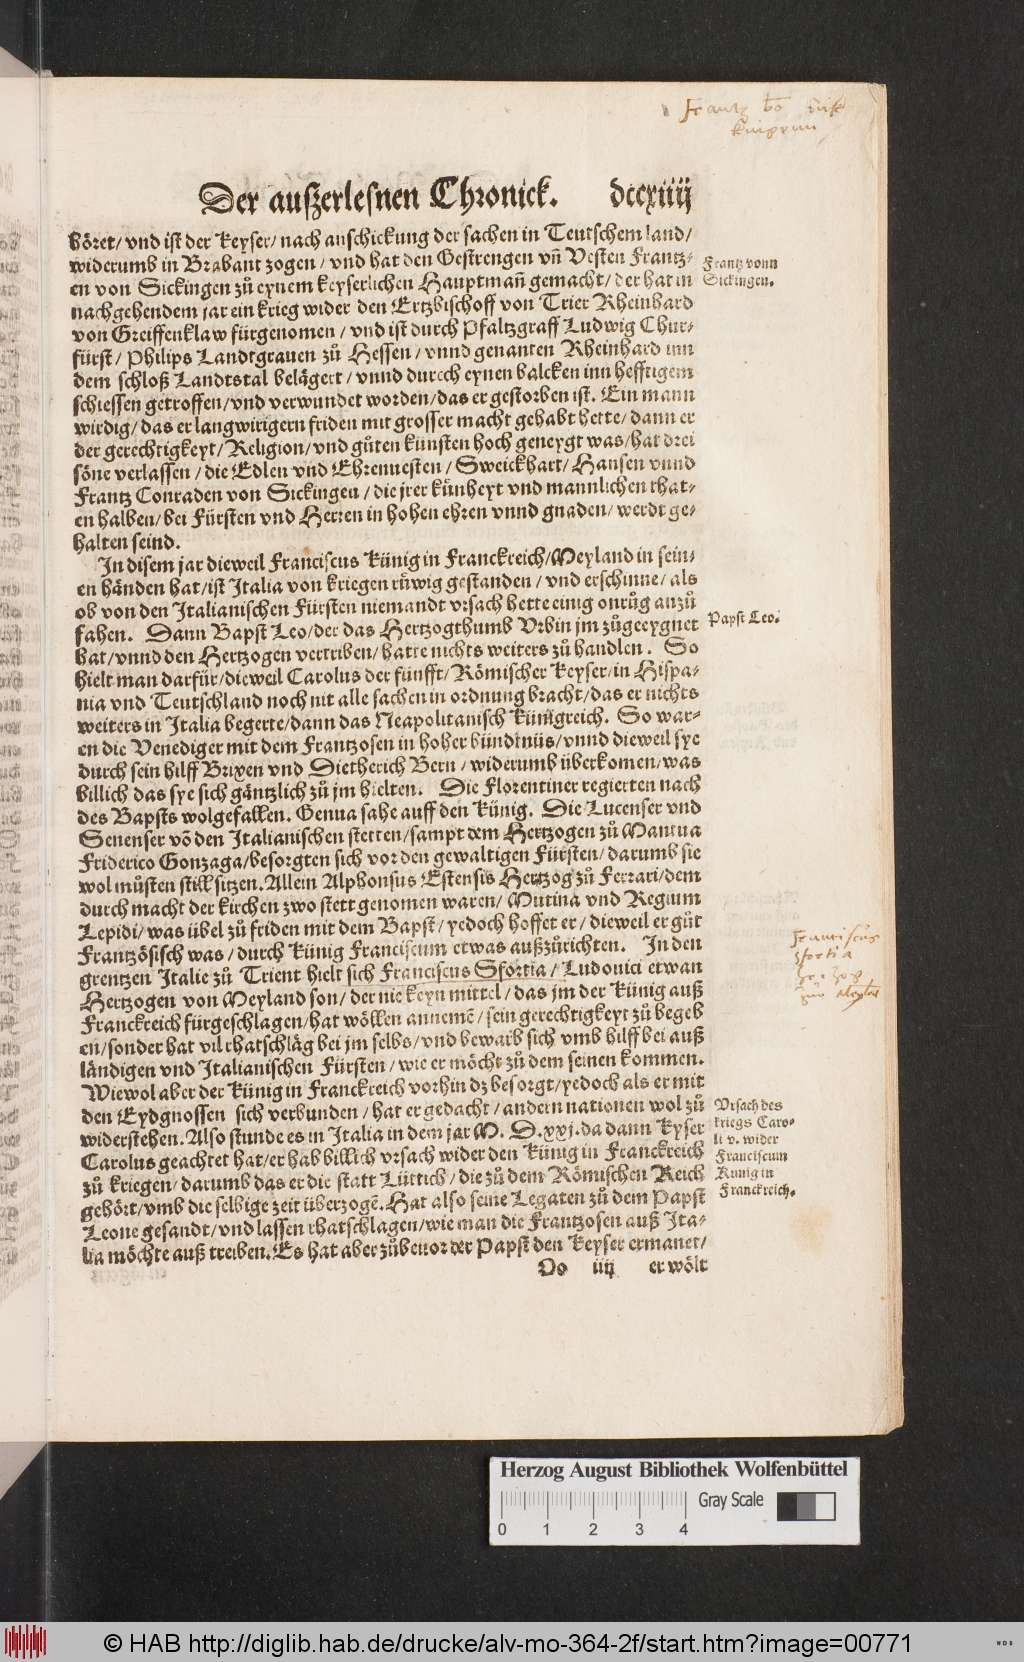 Der außzerlesnen Chronick. dccxiiij
höret/ vnd ist der Keyser/ nach anschickung der sachen in Teutschem land/
widerumb in Brabant zogen/ vnd hat den Gestrengen vñ Vesten Frantz-
en von Sickingen zů eynem keyserlichen Hauptmañ gemacht/ der hat in
nachgehendem jar ein krieg wider den Ertzbischoff von Trier Rheinhard
von Greiffenklaw fürgenomen/ vnd ist durch Pfaltzgraff Ludwig Chur-
fürst/ Philips Landtgrauen zů Hessen/ vnnd genanten Rheinhard inn
dem schloß Landtstal belägert/ vnnd durch eynen balcken inn hefftigem
schiessen getroffen/ vnd verwundet worden/ das er gestorben ist. Ein mann
wirdig/ das er langwirigern friden mit grosser macht gehabt hette/ dann er
der gerechtigkeyt/ Religion/ vnd gůten künsten hoch geneygt was/ hat drei
söne verlassen/ die Edlen vnd Ehrenuesten/ Sweickhart/ Hansen vnnd
Frantz Conraden von Sickingen/ die jrer künheyt vnd mannlichen that-
en halben/ bei Fürsten vnd Herren in hohen ehren vnnd gnaden/ werdt ge-
halten seind.
In disem jar dieweil Franciscus Künig in Franckreich/ Meyland in sein-
en händen hat/ ist Italia von kriegen růwig gestanden/ vnd erschinne/ als
ob von den Italianischen Fürsten niemandt vrsach hette einig onrůg anzů
fahen. Dann Bapst Leo/ der das Hertzogthumb Vrbin jm zůgeeygnet
hat/ vnnd den Hertzogen vertriben/ hatte nichts weiters zů handlen. So
hielt man darfür/ dieweil Carolus der fünfft/ Römischer Keyser/ in Hispa-
nia vnd Teutschland noch nit alle sachen in ordnung bracht/ das er nichts
weiters in Italia begerte/ dann das Neapolitanisch Künigreich. So war-
en die Venediger mit dem Frantzosen in hoher bündtnüs/ vnnd dieweil sye
durch sein hilff Brixen vnd Dietherich Bern/ widerumb überkomen/ was
billich das sye sich gäntzlich zů jm hielten. Die Florentiner regierten nach
des Bapsts wolgefallen. Genua sahe auff den Künig. Die Lucenser vnd
Senenser võ den Italianischen stetten/ sampt dem Hertzogen zů Mantua
Friderico Gonzaga/ besorgten sich vor den gewaltigen Fürsten/ darumb sie
wol můsten still sitzen. Allein Alphonsus Estensis Hertzog zů Ferrari/ dem
durch macht der kirchen zwo stett genomen waren/ Mutina vnd Regium
Lepidi/ was übel zů friden mit dem Bapst/ yedoch hoffet er/ dieweil er gůt
Frantzösisch was/ durch Künig Franciscum etwas außzůrichten. In den
grentzen Italie zů Trient hielt sich Franciscus Sfortia/ Ludouici etwan
Hertzogen von Meyland son/ der nie keyn mittel/ das jm der Künig auß
Franckreich fürgeschlagen/ hat wöllen annemē/ sein gerechtigkeyt zů begeb
en/ sonder hat vil rhatschläg bei jm selbs/ vnd bewarb sich vmb hilff bei auß
ländigen vnd Italianischen Fürsten/ wie er möcht zů dem seinen kommen.
Wiewol aber der Künig in Franckreich vorhin dz besorgt/ yedoch als er mit
den Eydgnossen sich verbunden/ hat er gedacht/ andern nationen wol zů
widerstehen. Also stunde es in Italia in dem jar M. D. xxj. da dann Kyser
Carolus geachtet hat/ er hab billich vrsach wider den Künig in Franckreich
zů kriegen/ darumb das er die statt Lüttich/ die zů dem Römischen Reich
gehört/ vmb die selbige zeit überzogē. Hat also seine Legaten zů dem Papst
Leone gesandt/ vnd lassen rhatschlagen/ wie man die Frantzosen auß Ita-
lia möchte auß treiben. Es hat aber zůbeuor der Papst den Keyser ermanet/
Oo iij er wölt
Frantz vonn
Sickingen.
Papst Leo.
Franciscus
Sfortia
Hertzog
zuo Meylan
Vrsach des
kriegs Caro-
li v. wider
Franciscum
Kunig in
Franckreich.
Herzog August Bibliothek Wolfenbüttel
Gray Scale
0 1 2 3 4
© HAB http://diglib.hab.de/drucke/alv-mo-364-2f/start.htm?image=00771